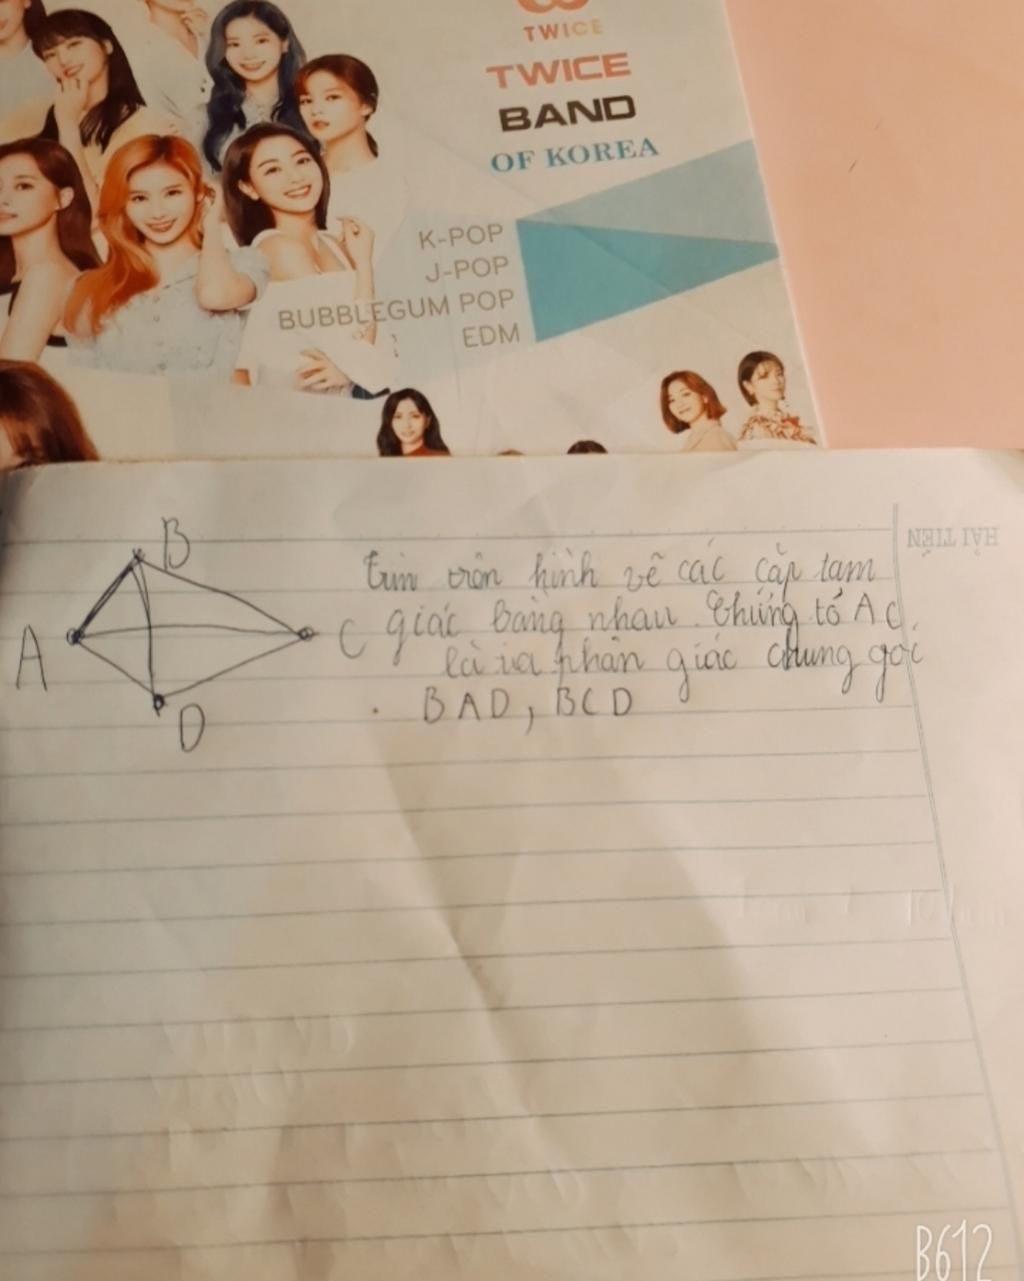 TWICE
TWICE
BAND
OF KOREA
K-POP
J-POP
BUBBLEGUM POP
EDM
HẢI TIẾN
B
A
C
D
tìm trên hình vẽ các cặp tam
giác bằng nhau. Chứng tỏ AC
là tia phân giác chung góc
BAD, BCD
B612